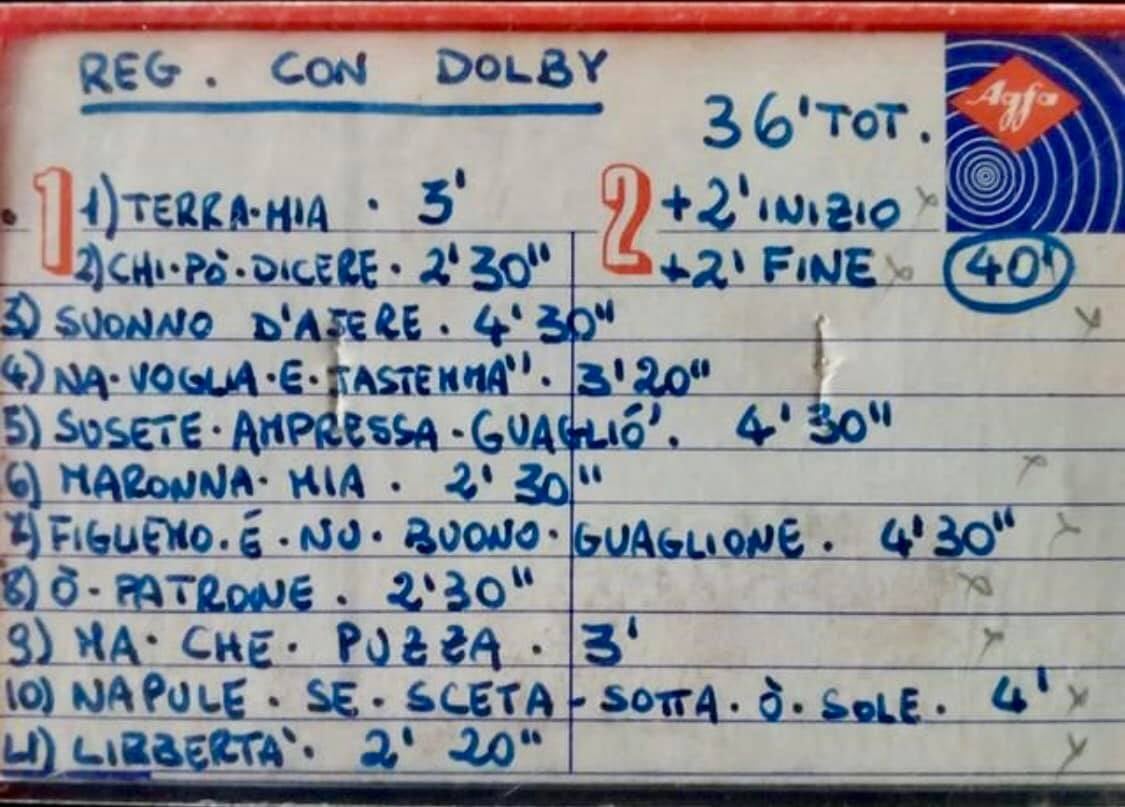 REG. CON DOLBY
Agfa
36' TOT.
1 1) TERRA·MIA · 3'
2 +2' INIZIO
2) CHI·PÒ·DICERE · 2'30"
+2' FINE
40'
3) SUONNO D'AJERE. 4'30"
4) NA·VOGLIA·E·JASTEMMA". 3'20"
5) SUSETE·AMPRESSA·GUAGLIÓ'. 4'30"
6) MARONNA·MIA. 2'30"
7) FIGLIEMO.É·NU·BUONO·GUAGLIONE. 4'30"
8) Ò·PATRONE. 2'30"
9) MA·CHE·PUZZA · 3'
10) NAPULE·SE·SCETA-SOTTA·Ò·SOLE. 4'
11) LIBBERTA'· 2' 20"